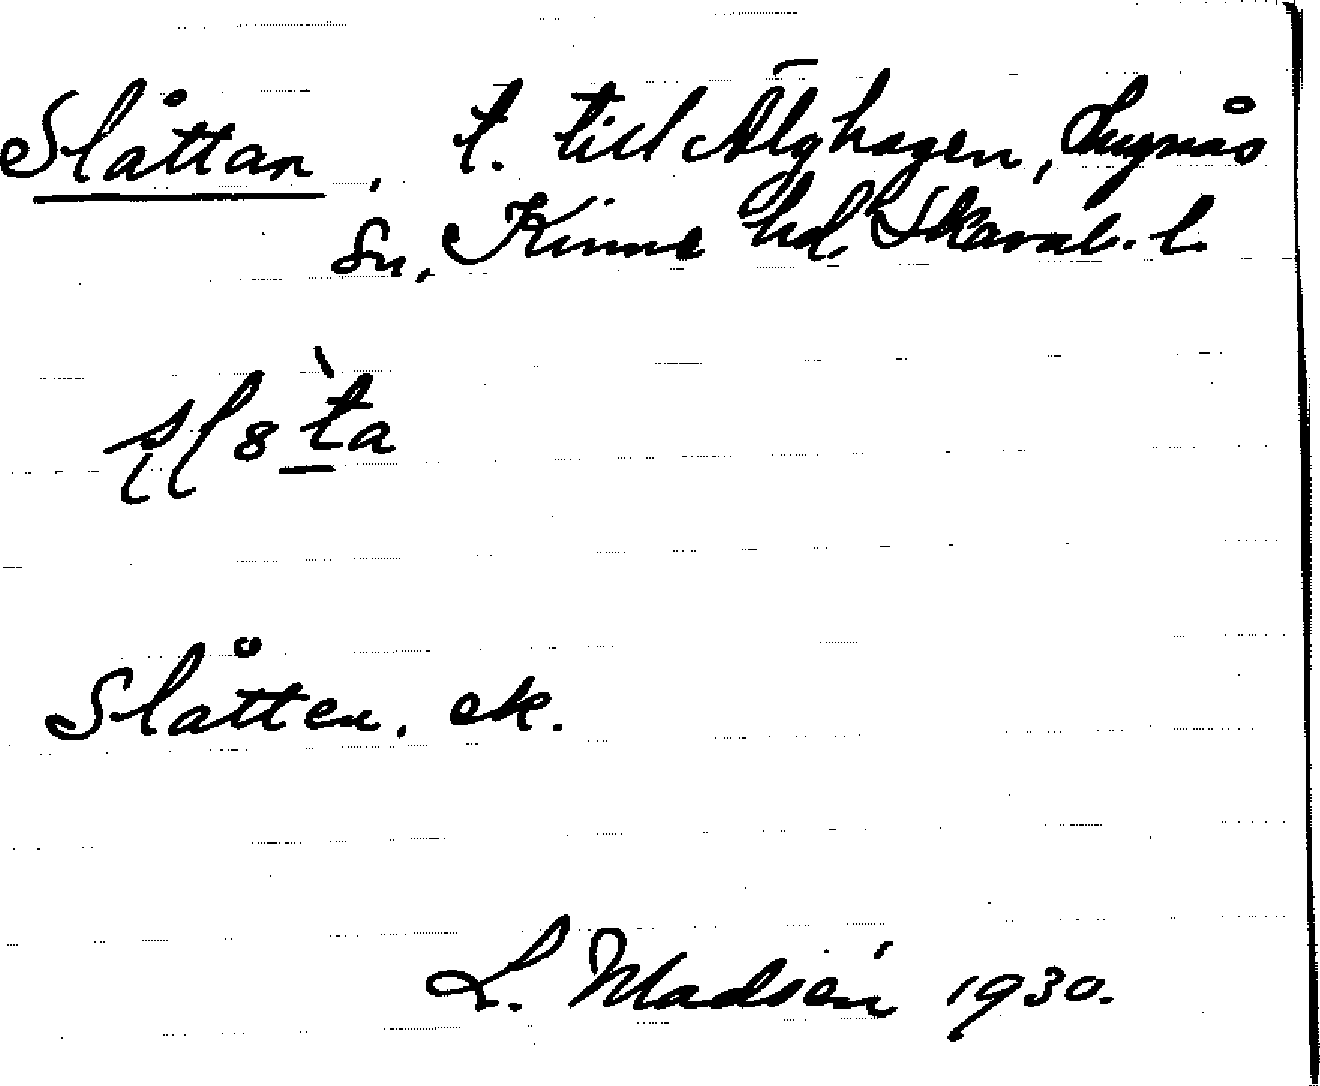 Slåttan, t. till Älghagen, Lugnås
Sn, Kinne hd. Skarab. l.
Slåtten. ek.
L. Madsén 1930.